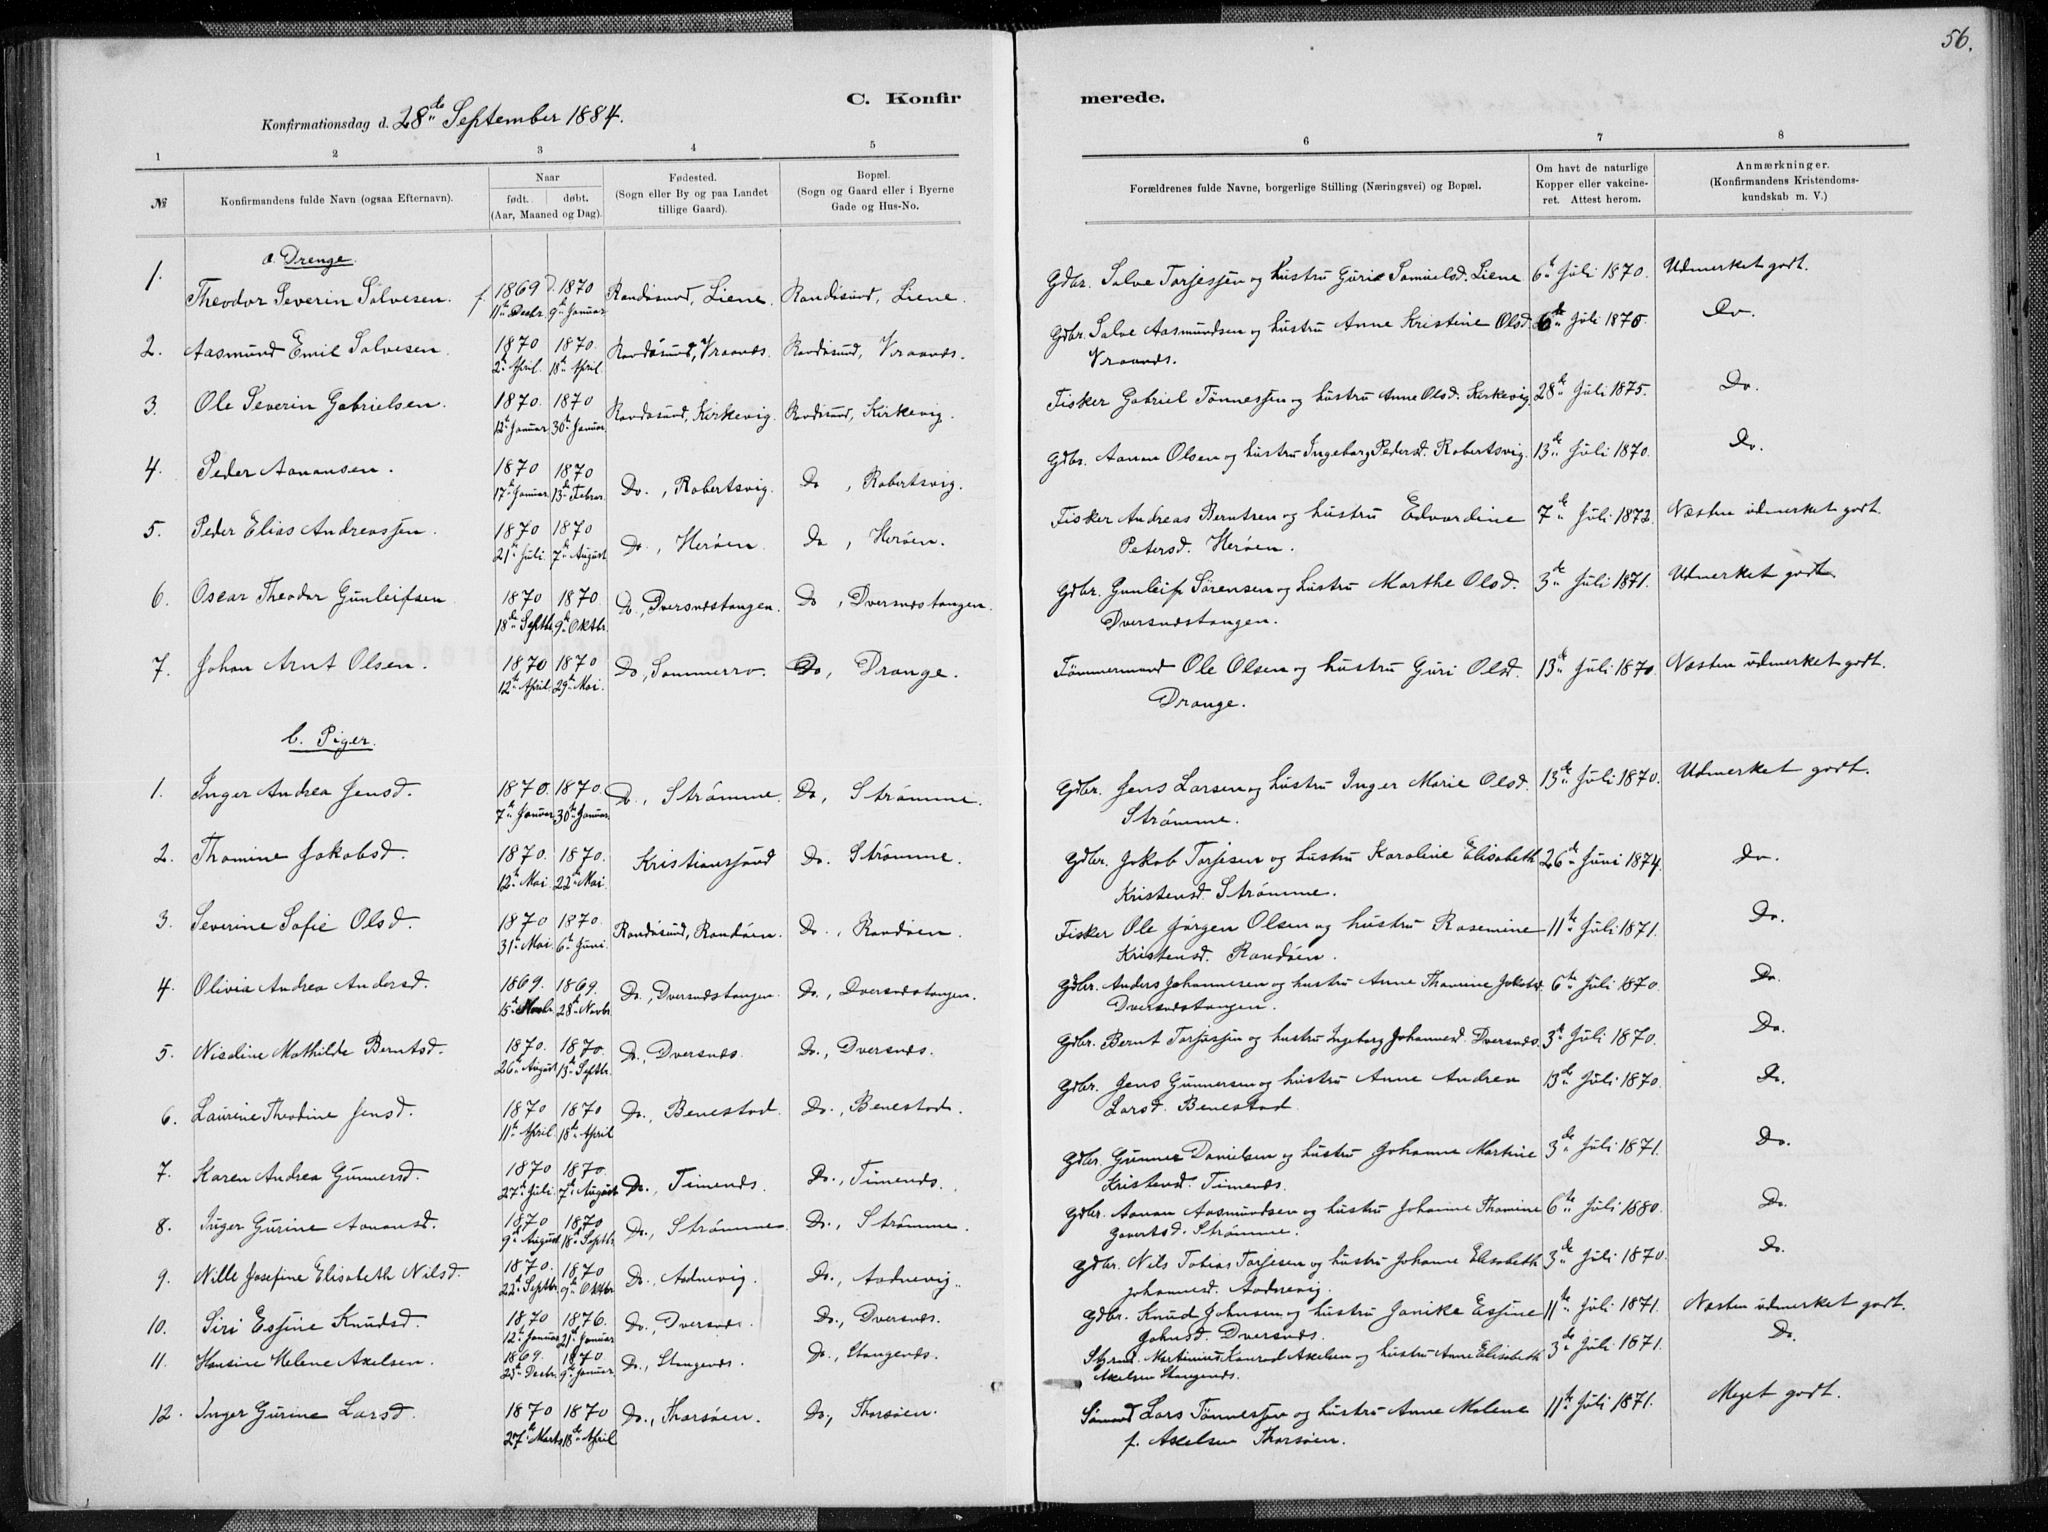 56.
C. Konfirmerede.
Konfirmationsdag d. 28de September 1884.
1 2 3 4 5 6 7 8
№
Konfirmandens fulde Navn (ogsaa Efternavn).
Naar
født. døbt.
(Aar, Maaned og Dag).
Fødested.
(Sogn eller By og paa Landet
tillige Gaard).
Bopæl.
(Sogn og Gaard eller i Byerne
Gade og Hus-No.
Forældrenes fulde Navne, borgerlige Stilling (Næringsvei) og Bopæl.
Om havt de naturlige
Kopper eller vakcine-
ret. Attest herom.
Anmærkninger.
(Konfirmandens Kristendoms-
kundskab m. V.)
a. Drenge.
1. Theodor Severin Salvesen. 1869 11te Decbr. 1870 9de Januar Randøsund, Liene. Randøsund, Liene. Gdbr. Salve Torjessen og hustru Guri Samuelsd. Liene 6te Juli 1870. Udmerket godt.
2. Aasmund Emil Salvesen. 1870 2den April. 1870. 18de April Randøsund, Vraanes. Randøsund, Vraanes. Gdbr. Salve Aasmundsen og hustru Anne Kristine Olsd. Juli
Vraanes. Do.
3. Ole Severin Gabrielsen. 1870. 12te Januar 1870 30te Januar Randøsund, Kirkevig. Randøsund, Kirkevig. Fisker Gabriel Tønnessen og hustru Anne Olsd. Kirkevig. 28de Juli 1875. Do.
4. Peder Aanansen. 1870 17de Januar 1870 13de Febr. Do., Robertsvig. Do, Robertsvig. Gdbr. Aanan Olsen og hustru Ingeborg Pedersd. Robertsvig. 13de Juli 1870. Do.
5. Peder Elias Andreassen. 1870 21de Juli. 1870 7de August Do., Herøen. Do, Herøen. Fisker Andreas Berntsen og hustru Edvardine 7de Juli 1872. Næsten udmerket godt.
Petersd. Herøen.
6. Oscar Theodor Gunleifsen 1870 18de Septbr. 1870. 9de Oktbr. Do., Dversnæstangen. Do, Dversnæstangen. Gdbr. Gunleif Sørensen og hustru Marthe Olsd. 3de Juli 1871. Udmerket godt
Dversnæstangen.
7. Johan Arnt Olsen. 1870 12te April. 1870 29de Mai. Do., Sommerro. Do, Drange. Tømmermand Ole Olsen og hustru Guri Olsd. 13de Juli 1870. Næsten udmerket godt.
Drange.
b. Piger.
1. Inger Andrea Jensd. 1870. 7de Januar 1870. 30te Januar. Do., Strømme. Do, Strømme. Gdbr. Jens Larsen og hustru Inger Marie Olsd. 13de Juli 1870. Udmerket godt.
Strømme.
2. Thomine Jakobsd. 1870. 12te Mai. 1870. 22de Mai. Kristianssand Do. Strømme. Gdbr. Jakob Torjesen og hustru Karoline Elisabeth 26de Juni 1874. Do.
Kristensd. Strømme.
3. Severine Sofie Olsd. 1870 31te Mai 1870. 6te Juni. Randøsund, Randøen. Do., Randøen. Fisker Ole Jørgen Olsen og hustru Rosemine 11te Juli 1871. Do.
Kristensd. Randøen.
4. Olivia Andrea Andersd. 1869. 15de Novbr 1869. 28de Novbr. Do., Dversnæstangen. Do., Dversnæstangen. Gdbr. Anders Johannesen og hustru Anne Thomine Jakobsd. 6te Juli 1870. Do.
Dversnæstangen.
5. Nicoline Mathilde Berntsd. 1870. 26de August 1870. 13de Septbr. Do. Dversnæs. Do., Dversnæs. Gdbr. Bernt Torjesjen og hustru Ingeborg Johannesd. Dversnæs. 3de Juli 1870. Do.
6. Laurine Theodine Jensd. 1870 11te April. 1870 18de April Do., Benestad. Do., Benestad. Gdbr. Jens Gunnersen og hustru Anne Andrea 13de Juli 1870. Do.
Larsd. Benestad.
7. Karen Andrea Gunnersd. 1870 27de Juli. 1870. 7de August Do., Timenes. Do., Timenes. Gdbr. Gunner Danielsen og hustru Johanne Martine 3de Juli 1871. Do.
Kristensd. Timenes.
8. Inger Gurine Aanansd. 1870 9de August 1870 18de Septbr. Do., Strømme. Do., Strømme. Gdbr. Aanan Aasmundsen og hustru Johanne Thomine 6te Juli 1880. Do.
Gavertsd. Strømme.
9. Nille Josefine Elisabeth Nilsd. 1870. 22de Septbr. 1870 9de Oktbr Do., Aadnevig. Do., Aadnevig. Gdbr. Nils Tobias Torjesen og hustru Johanne Elisabeth 3de Juli 1870. Do.
Johannesd. Aadnevig.
10. Siri Essine Knudsd. 1870 12te Januar 1876. 21de Januar. Do., Dversnæs. Do., Dversnæs. Gdbr. Knud Johnsen og hustru Janike Essine 11te Juli 1871. Næsten udmerket godt.
Johnsd. Dversnæs.
11. Hansine Helene Axelsen. 1869. 25de Decbr. 1870. 9de Januar Do., Stangenæs. Do., Stangenæs. Styrmd. Martinius Konrad Axelsen og hustru Anne Elisabeth 3de Juli 1871. Do.
Axelsen Stangenæs.
12. Inger Gurine Larsd. 1870 27de Marts 1870 18de April Do., Thorsøen. Do., Thorsøen. Sømand Lars Tønnessen og hustru Anne Malene 11te Juli 1871. Meget godt.
f. Axelsen Thorsøen.